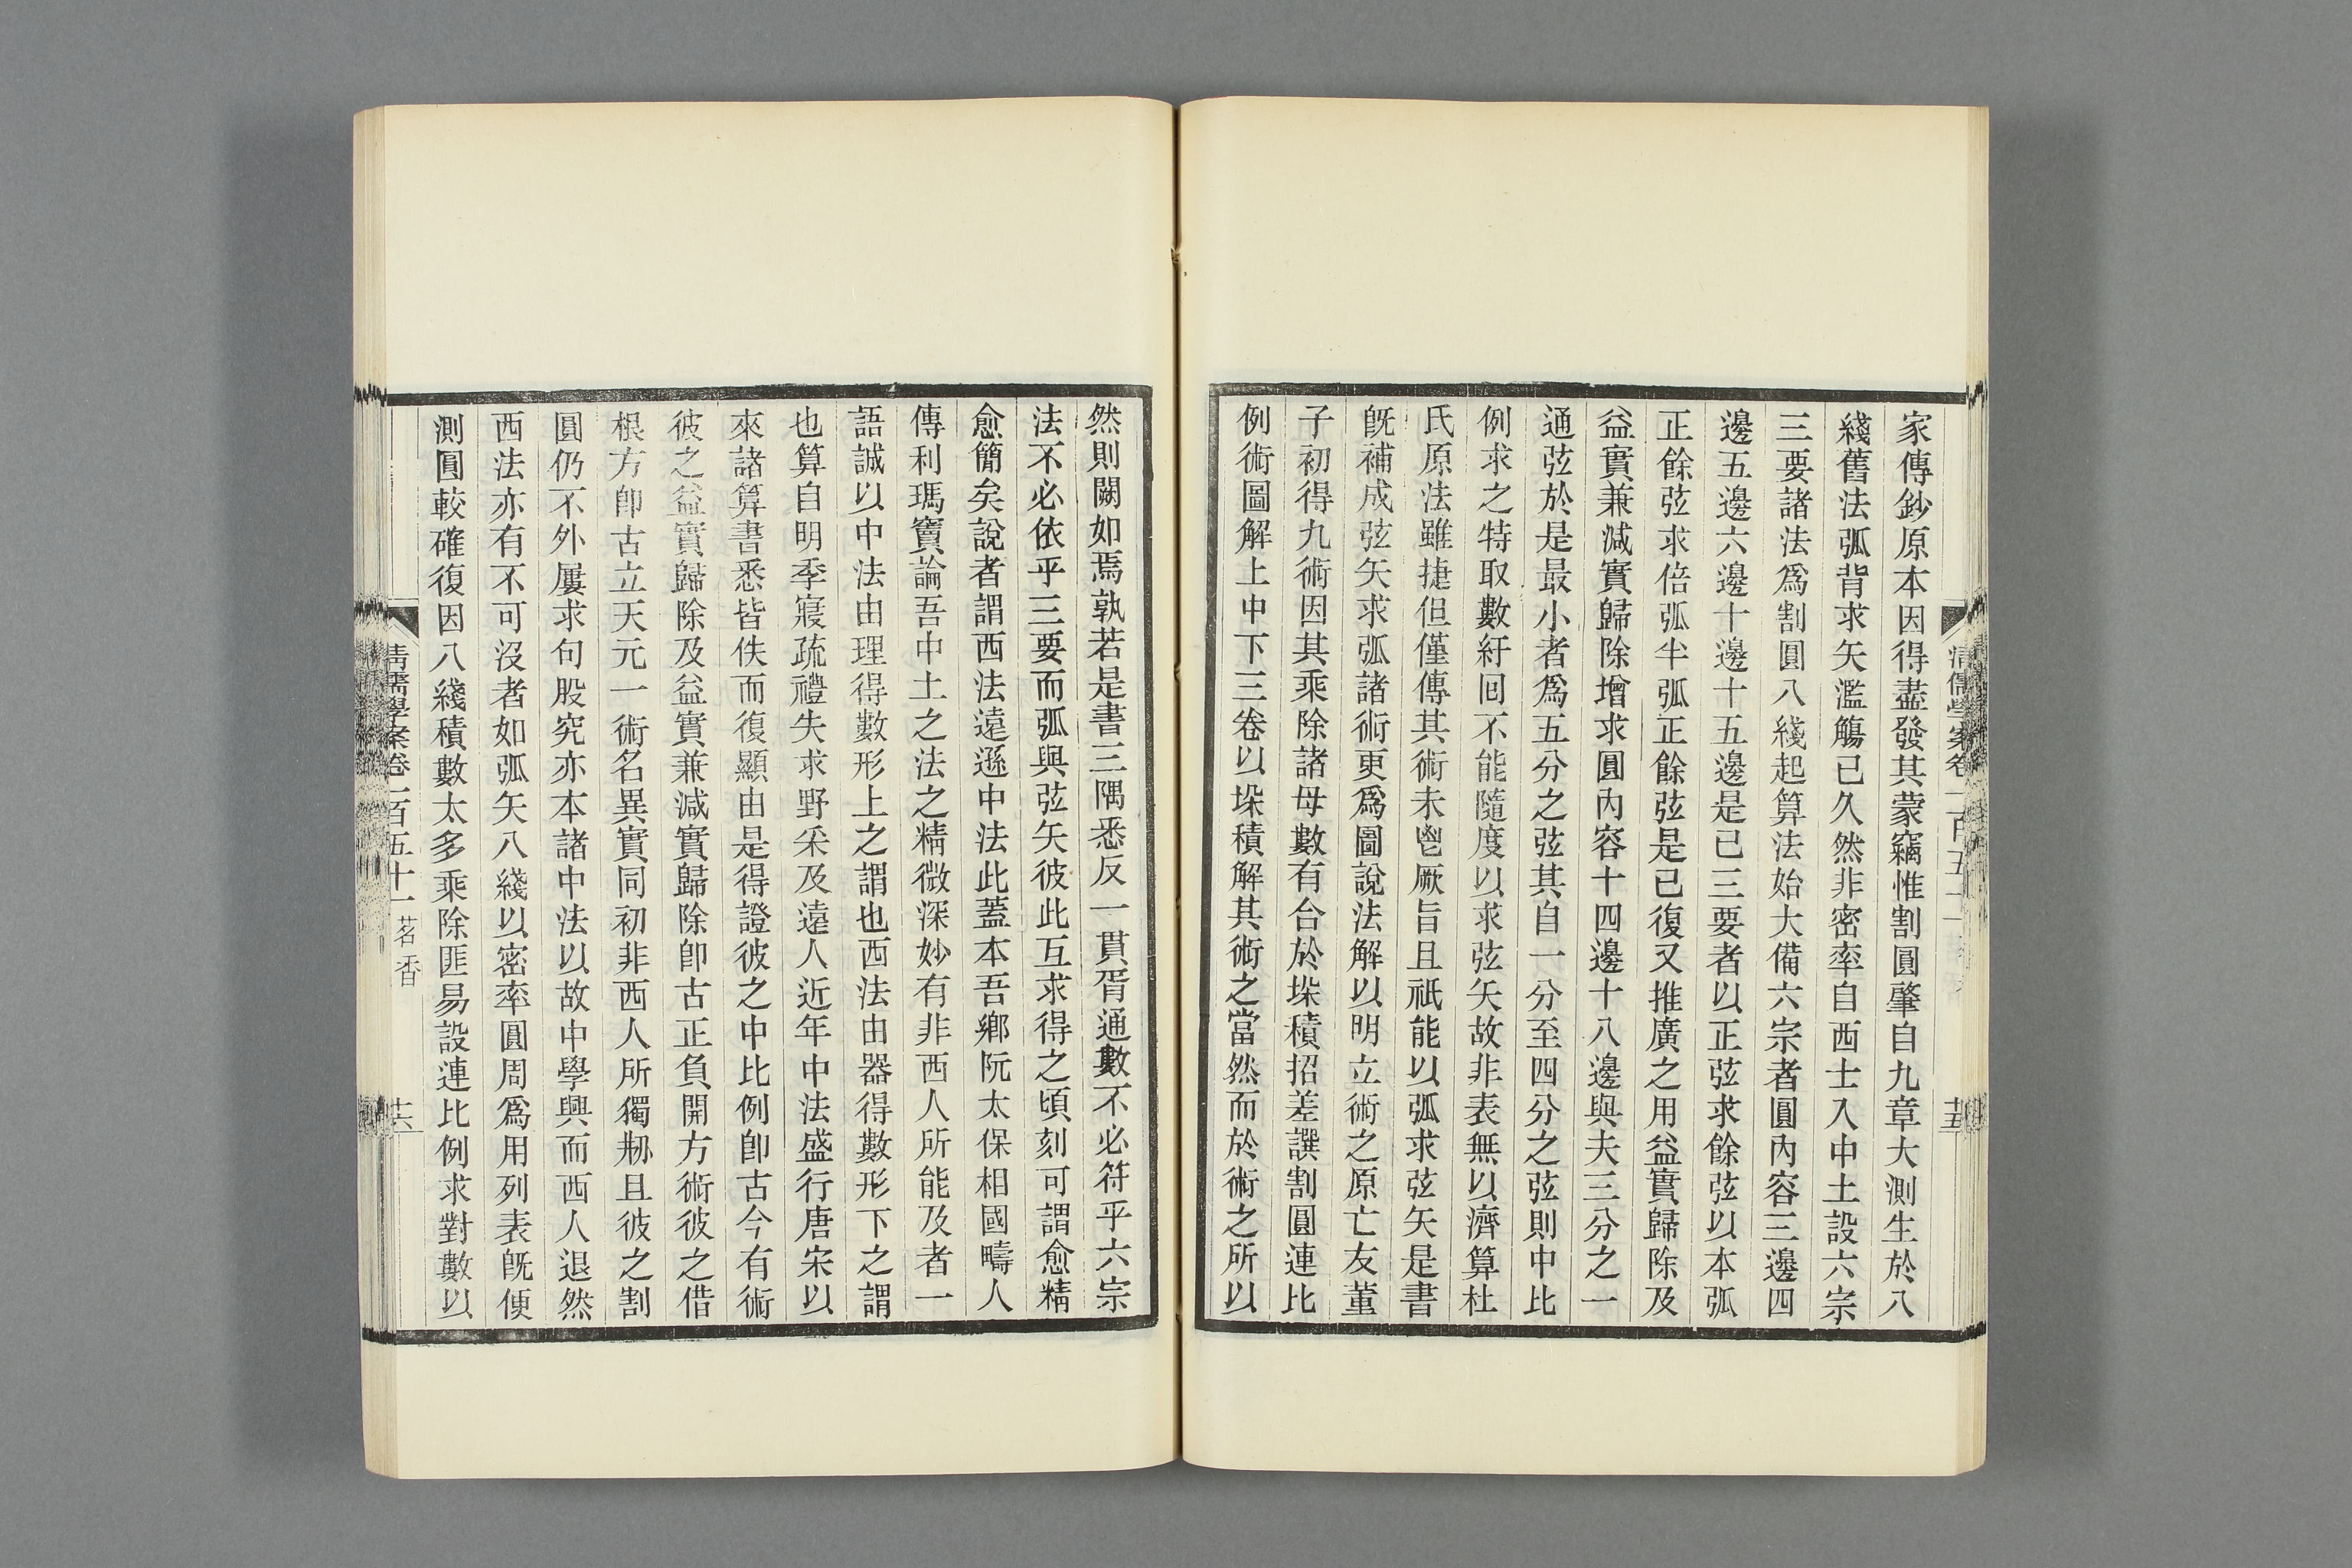 家傳鈔原本因得盡發其蒙竊惟割圓肇自九章大測生於八
綫舊法弧背求矢濫觴已久然非密率自西士入中土設六宗
三要諸法爲割圓八綫起算法始大備六宗者圓內容三邊四
邊五邊六邊十邊十五邊是已三要者以正弦求餘弦以本弧
正餘弦求倍弧半弧正餘弦是已復又推廣之用益實歸除及
益實兼減實歸除增求圓內容十四邊十八邊與夫三分之一
通弦於是最小者爲五分之弦其自一分至四分之弦則中比
例求之特取數紆回不能隨度以求弦矢故非表無以濟算杜
氏原法雖捷但僅傳其術未鬯厥旨且祇能以弧求弦矢是書
旣補成弦矢求弧諸術更爲圖說法解以明立術之原亡友董
子初得九術因其乘除諸母數有合於垛積招差譔割圓連比
例術圖解上中下三卷以垛積解其術之當然而於術之所以
然則闕如焉孰若是書三隅悉反一貫胥通數不必符乎六宗
法不必依乎三要而弧與弦矢彼此互求得之頃刻可謂愈精
愈簡矣說者謂西法遠遜中法此蓋本吾鄉阮太保相國疇人
傳利瑪竇論吾中土之法之精微深妙有非西人所能及者一
語誠以中法由理得數形上之謂也西法由器得數形下之謂
也算自明季寢疏禮失求野釆及遠人近年中法盛行唐宋以
來諸算書悉皆佚而復顯由是得證彼之中比例卽古今有術
彼之益實歸除及益實兼減實歸除卽古正負開方術彼之借
根方卽古立天元一術名異實同初非西人所獨刱且彼之割
圓仍不外屢求句股究亦本諸中法以故中學興而西人退然
西法亦有不可沒者如弧矢八綫以密率圓周爲用列表旣便
測圓較確復因八綫積數太多乘除匪易設連比例求對數以
清儒學案卷一百五十一 茗香
十六